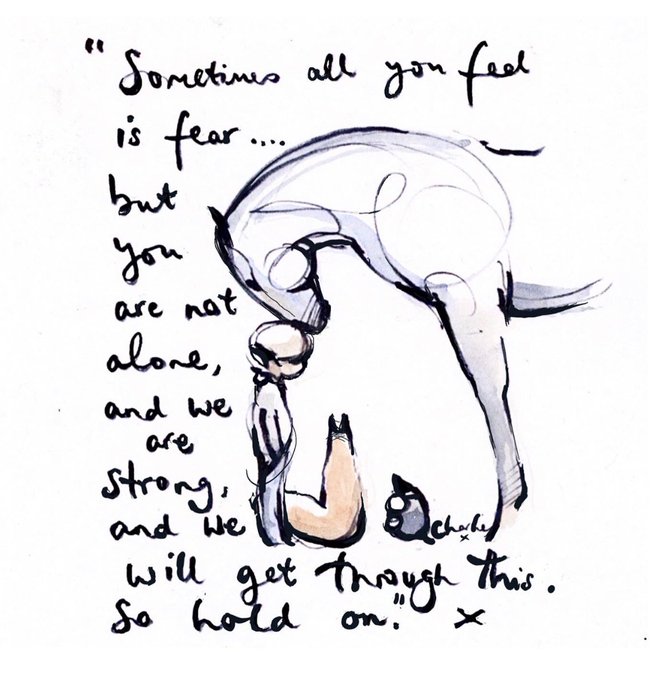 "Sometimes all you feel
is fear....
but
you
are not
alone,
and we
are
strong,
and we
will get through this.
So hold on." x
Charlie
x